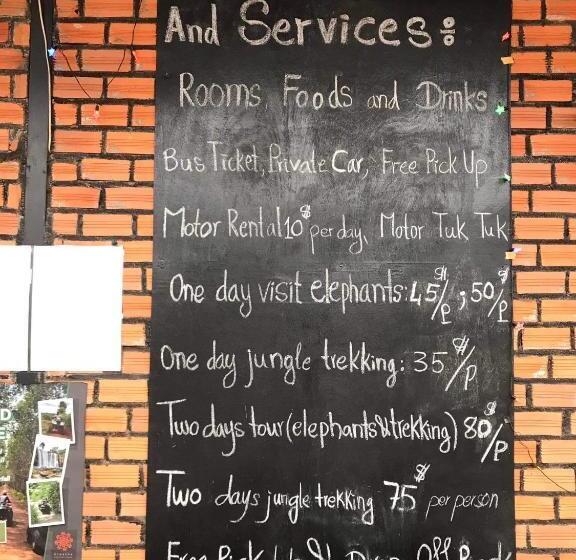 And Services:
Rooms, Foods and Drinks
Bus Ticket, Private Car, Free Pick Up
Motor Rental 10$ per day, Motor Tuk Tuk
One day visit elephants: 45$/P ; 50$/P
One day jungle trekking: 35$/P
Two days tour (elephants & trekking) 80$/P
Two days jungle trekking 75$ per person
Free Pick Up & Drop Off